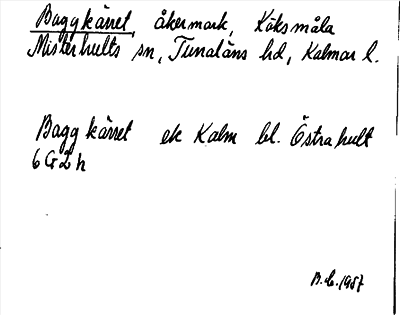 Baggkärret, åkermark, Köksmåla
Misterhults sn, Tunaläns hd, Kalmar l.
Baggkärret ek Kalm bl. Östrahult
6G2h
B.L. 1957